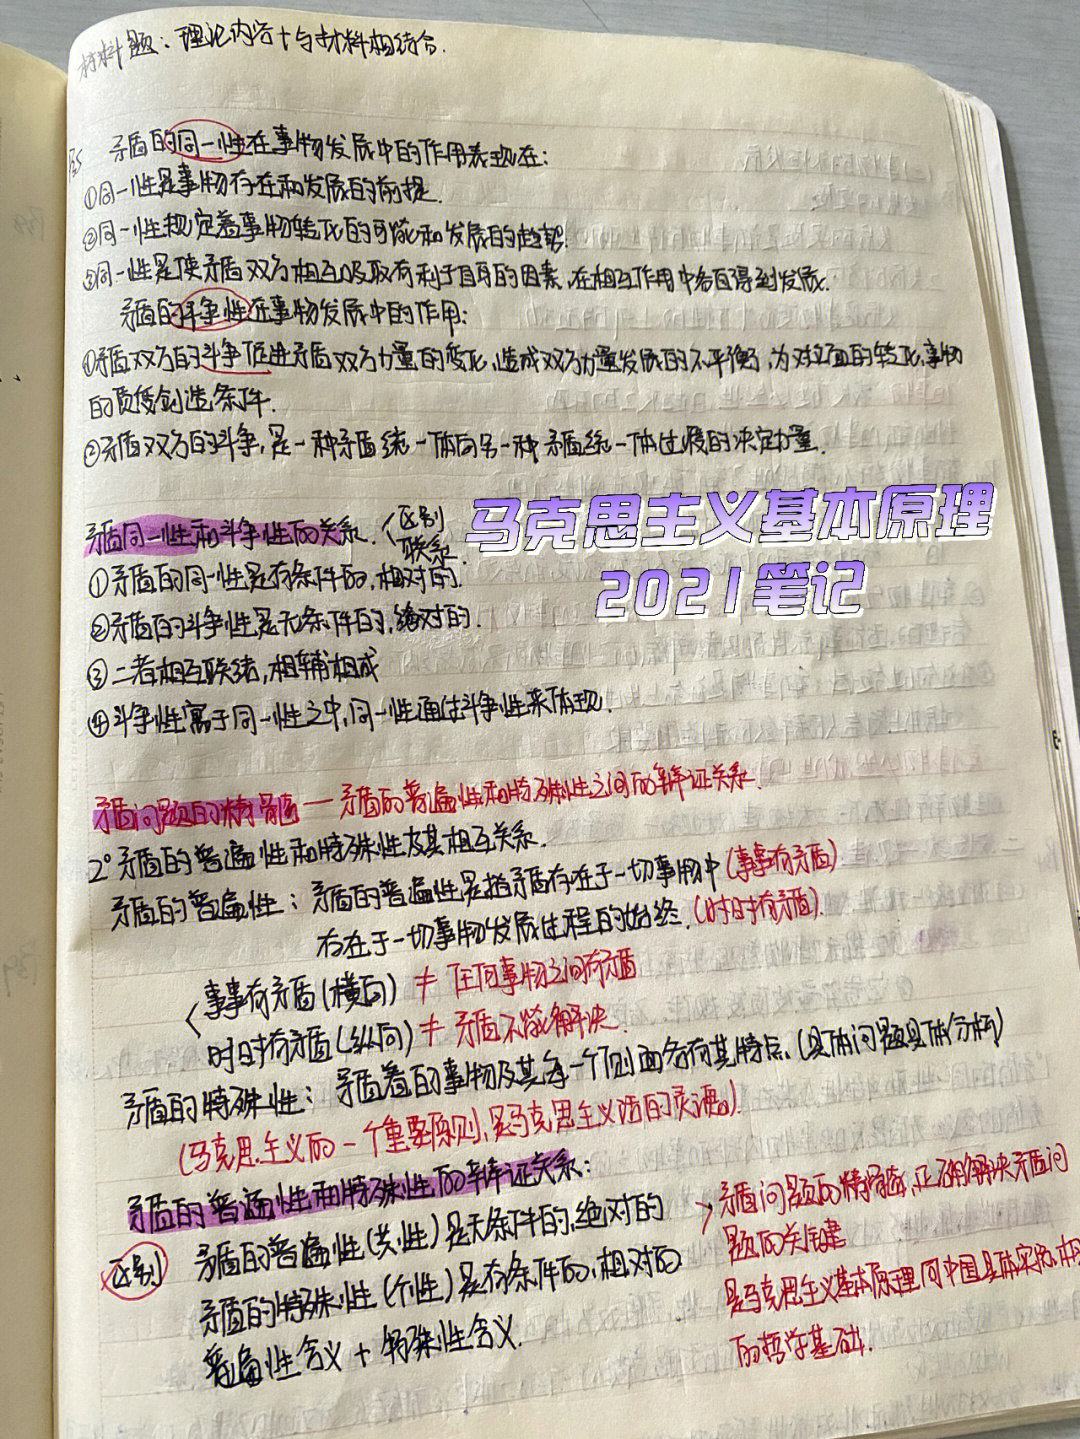 材料题：理论内容+与材料相结合.
矛盾的同一性在事物发展中的作用表现在：
①同一性是事物存在和发展的前提.
②同一性规定着事物转化的可能和发展的趋势.
③同一性是使矛盾双方相互吸取有利于自身的因素,在相互作用中各自得到发展.
矛盾的斗争性在事物发展中的作用：
①矛盾双方的斗争促进矛盾双方力量的变化,造成双方力量发展的不平衡,为对立面的转化,事物
的质变创造条件.
②矛盾双方的斗争,是一种矛盾统一体向另一种矛盾统一体过渡的决定力量.
马克思主义基本原理
2021笔记
矛盾同一性和斗争性的关系.〈区别
联系.
①矛盾的同一性是有条件的,相对的.
②矛盾的斗争性是无条件的,绝对的.
③二者相互联结,相辅相成
④斗争性寓于同一性之中,同一性通过斗争性来体现.
矛盾问题的精髓—矛盾的普遍性和特殊性之间的辩证关系.
2°矛盾的普遍性和特殊性及其相互关系.
矛盾的普遍性：矛盾的普遍性是指矛盾存在于一切事物中(事事有矛盾)
存在于一切事物发展过程的始终.(时时有矛盾).
〈事事有矛盾(横向) ≠ 任何事物之间有矛盾
时时有矛盾(纵向) ≠ 矛盾不能解决.
矛盾的特殊性：矛盾着的事物及其每一个侧面各有其特点.(具体问题具体分析)
(马克思主义的一个重要原则,是马克思主义活的灵魂).
矛盾的普遍性和特殊性的辩证关系：
区别 矛盾的普遍性(共性)是无条件的,绝对的
矛盾的特殊性(个性)是有条件的,相对的
普遍性含义+特殊性含义.
>矛盾问题的精髓,正确解决矛盾问
题的关键
是马克思主义基本原理同中国具体实际相
的哲学基础.